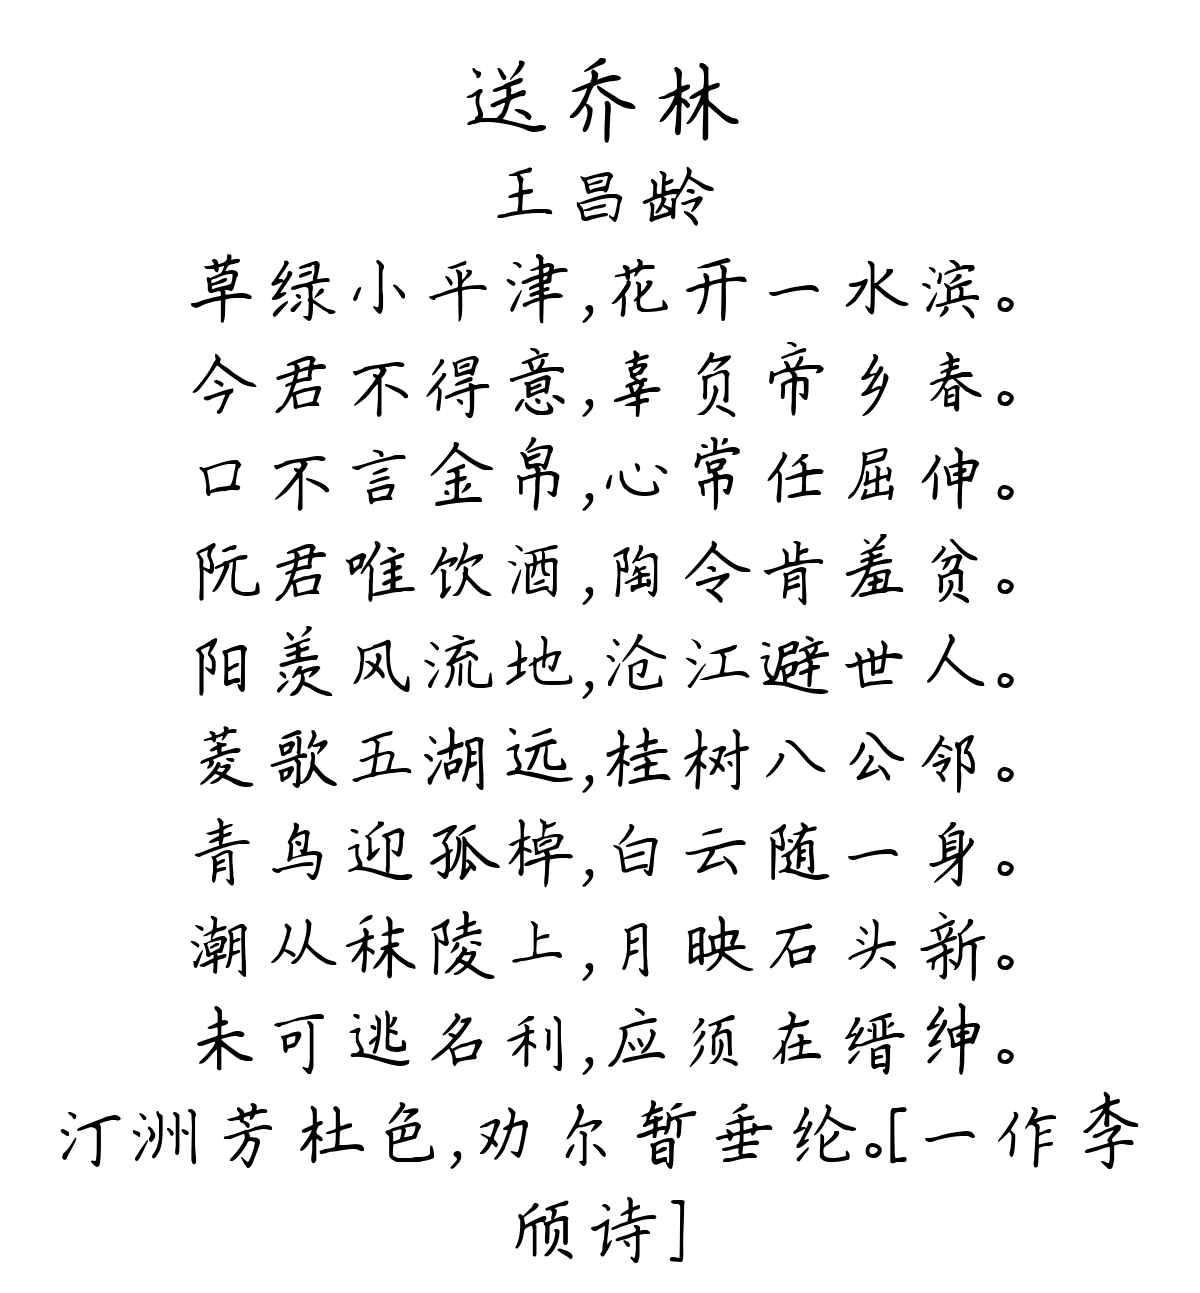 送乔林
王昌龄
草绿小平津,花开一水滨。
今君不得意,辜负帝乡春。
口不言金帛,心常任屈伸。
阮君唯饮酒,陶令肯羞贫。
阳羡风流地,沧江避世人。
菱歌五湖远,桂树八公邻。
青鸟迎孤棹,白云随一身。
潮从秣陵上,月映石头新。
未可逃名利,应须在缙绅。
汀洲芳杜色,劝尔暂垂纶。[一作李
颀诗]